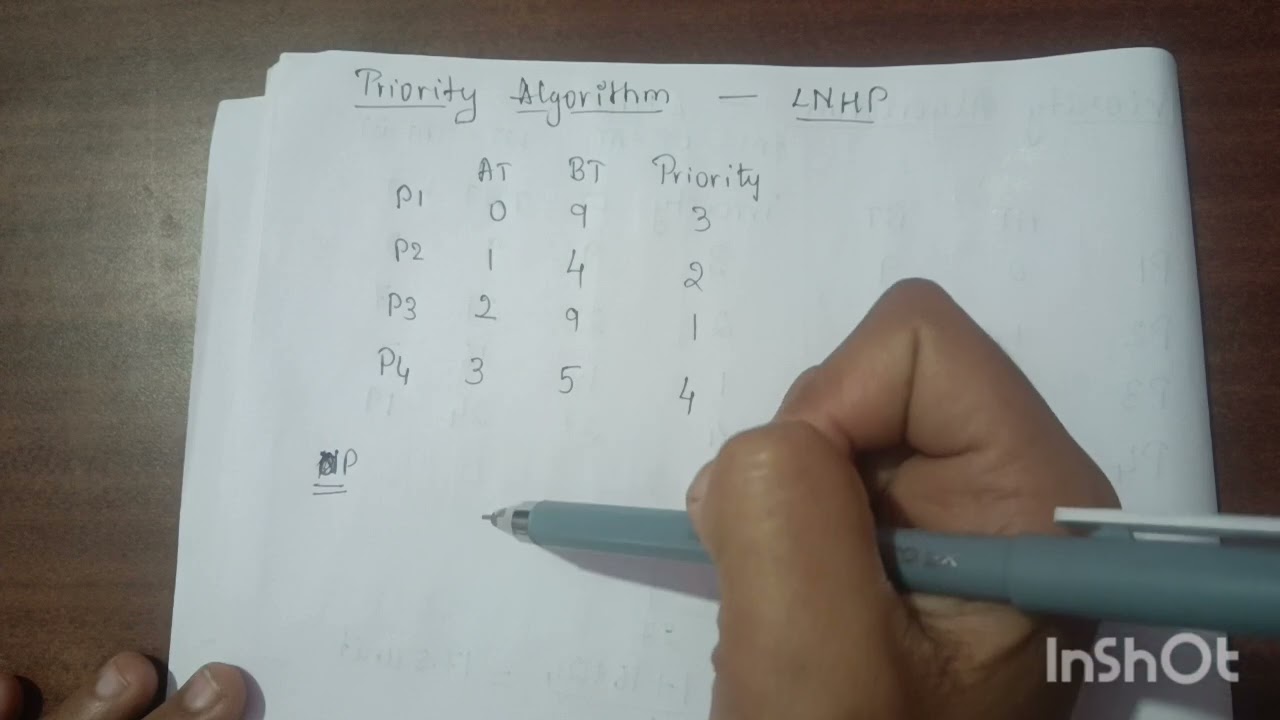 Priority Algorithm — LNHP
AT BT Priority
P1 0 9 3
P2 1 4 2
P3 2 9 1
P4 3 5 4
P
InShOt